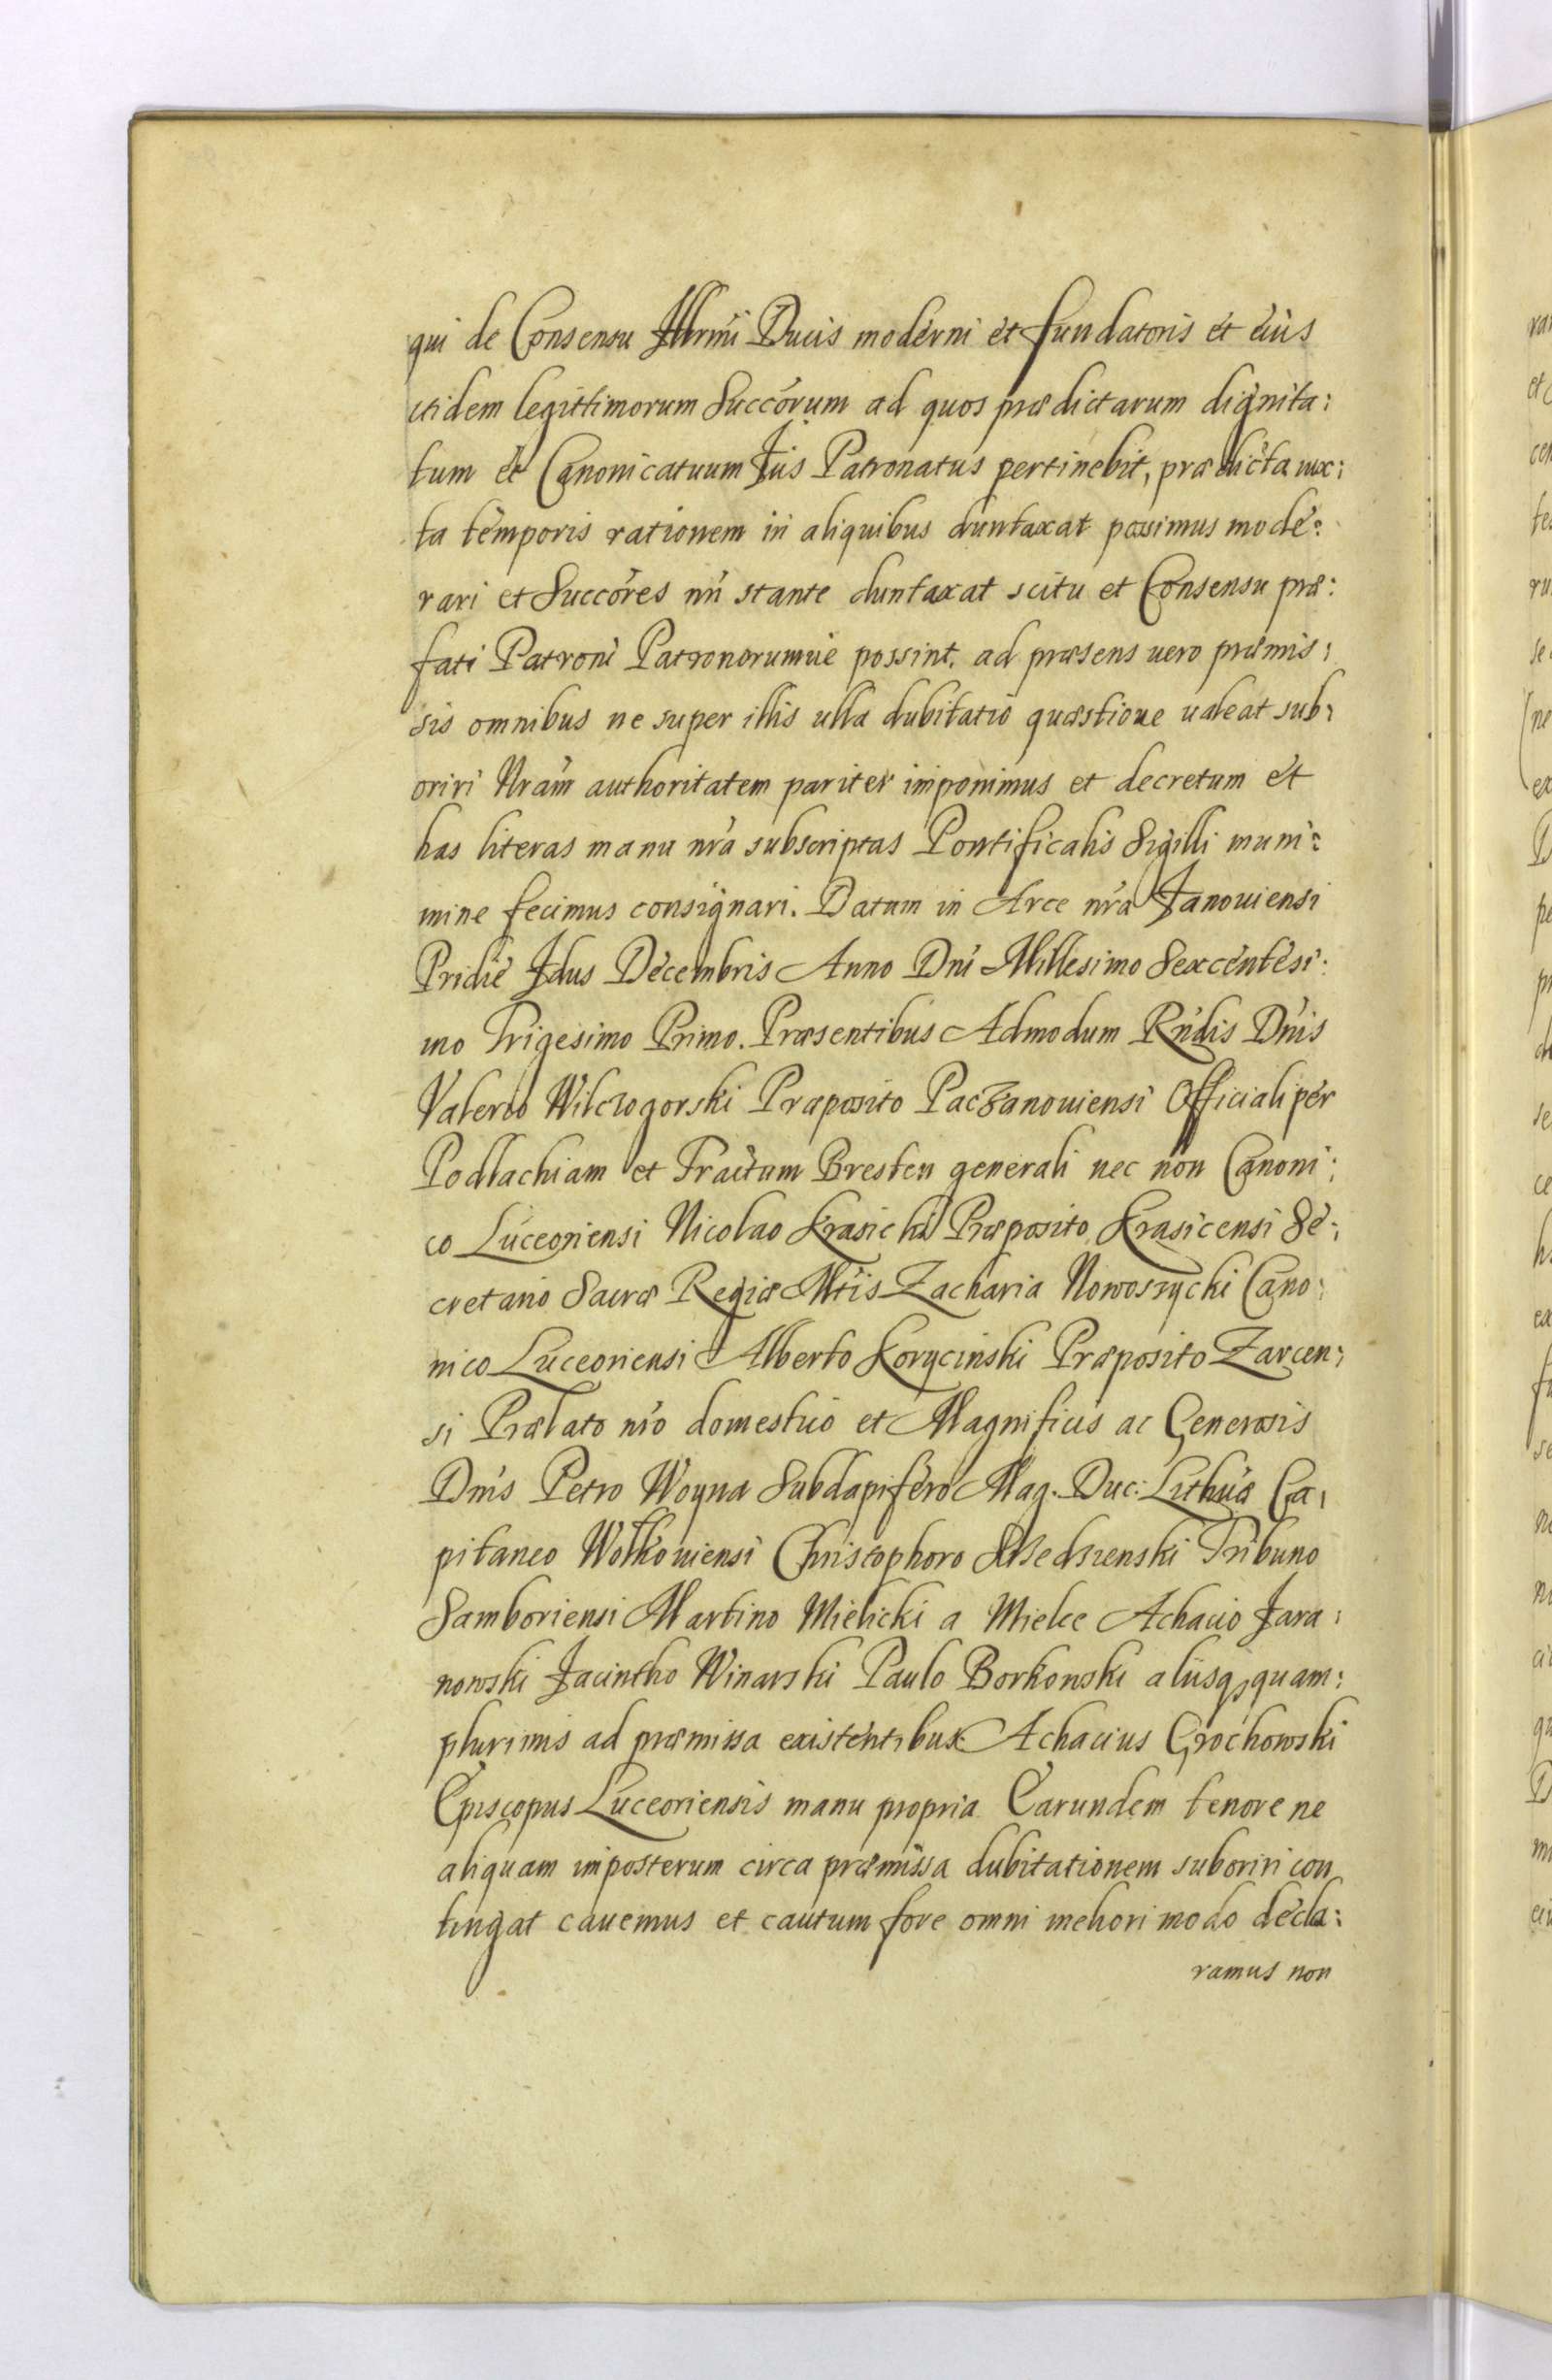 qui de Consensu Illrmi Ducis moderni et fundatoris et eius
itidem legittimorum Succorum ad quos prædictarum dignita:
tum et Canonicatuum Jus Patronatus pertinebit, prædicta iux:
ta temporis rationem in aliquibus duntaxat possimus mode:
rari et Succores nri stante duntaxat scitu et Consensu præ:
fati Patroni Patronorumue possint. ad præsens uero præmis:
sis omnibus ne super illis ulla dubitatio quæstioue ualeat sub:
oriri Nram authoritatem pariter imponimus et decretum et
has literas manu nra subscriptas Pontificalis Sigilli muni:
mine fecimus consignari. Datum in Arce nra Janouiensi
Pridie Idus Decembris Anno Dni Millesimo Sexcentesi:
mo Trigesimo Primo. Præsentibus Admodum Rndis Dnis
Valerio Wilczogorski Præposito Paczanouiensi Officiali per
Podlachiam et Tractum Bresten generali nec non Canoni:
co Luceoriensi Nicolao Krasicki Præposito Krasicensi Se:
cretario Sacræ Regiæ Mtis Zacharia Nowoszycki Cano:
nico Luceoriensi Alberto Korycinski Præposito Zarcen:
si Prælato nro domestico et Magnificis ac Generosis
Dnis Petro Woyna Subdapifero Mag. Duc: Lithuæ Ca:
pitaneo Wolkouiensi Christophoro Tribuno
Samboriensi Martino Mielicki a Mielce Achacio Jara:
nowski Jacintho Winarski Paulo Borkowski aliisq quam:
plurimis ad præmissa existentibus Achacius Grochowski
Episcopus Luceoriensis manu propria Earundem tenore ne
aliquam imposterum circa præmissa dubitationem suboriri con
tingat cauemus et cautum fore omni meliori modo decla:
ramus non